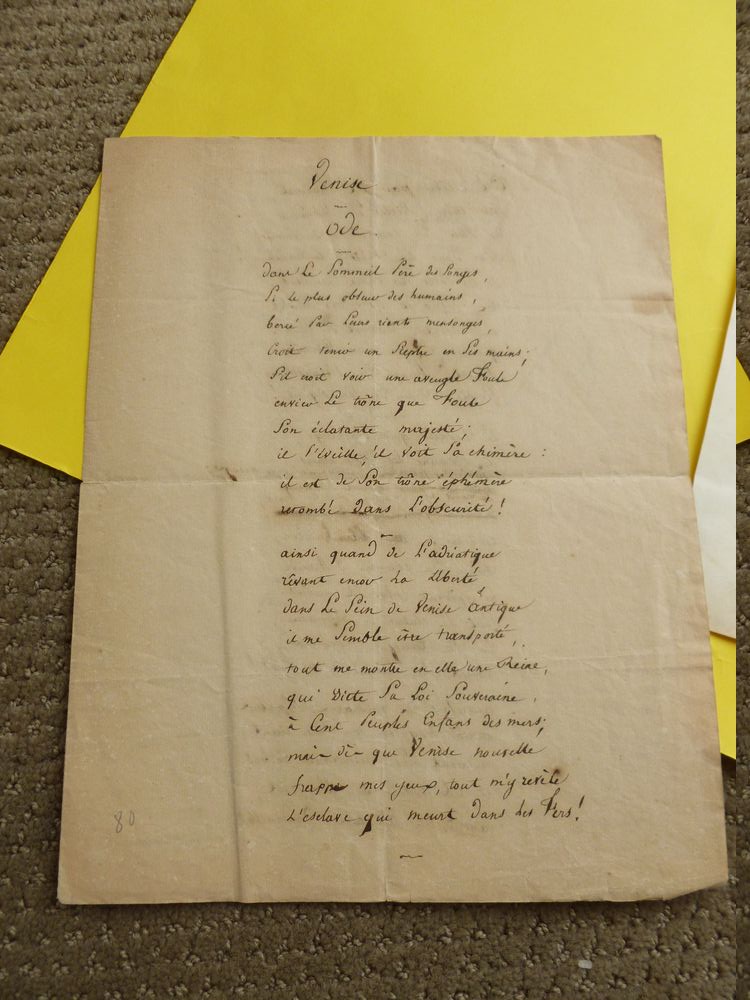 Venise
Ode
dans Le Sommeil Père des Songes,
Si le plus obscur des humains,
bercé Par Leurs riants mensonges,
Croit tenir un Sceptre en Ses mains;
S'il croit voir une aveugle Foule
envier Le trône que Foule
Son éclatante majesté;
il S'éveille, il voit Sa chimère :
il est de Son trône éphémère
retombé Dans L'obscurité !
ainsi quand de L'adriatique
rêvant encor La Liberté
dans Le Sein de Venise antique
il me Semble être transporté,
tout me montre en elle une Reine,
qui Dicte Sa Loi Souveraine,
à Cent Peuples Enfans des mers;
mais dès que Venise nouvelle
frappe mes yeux, tout m'y revèle
L'esclave qui meurt Dans des Fers !
80